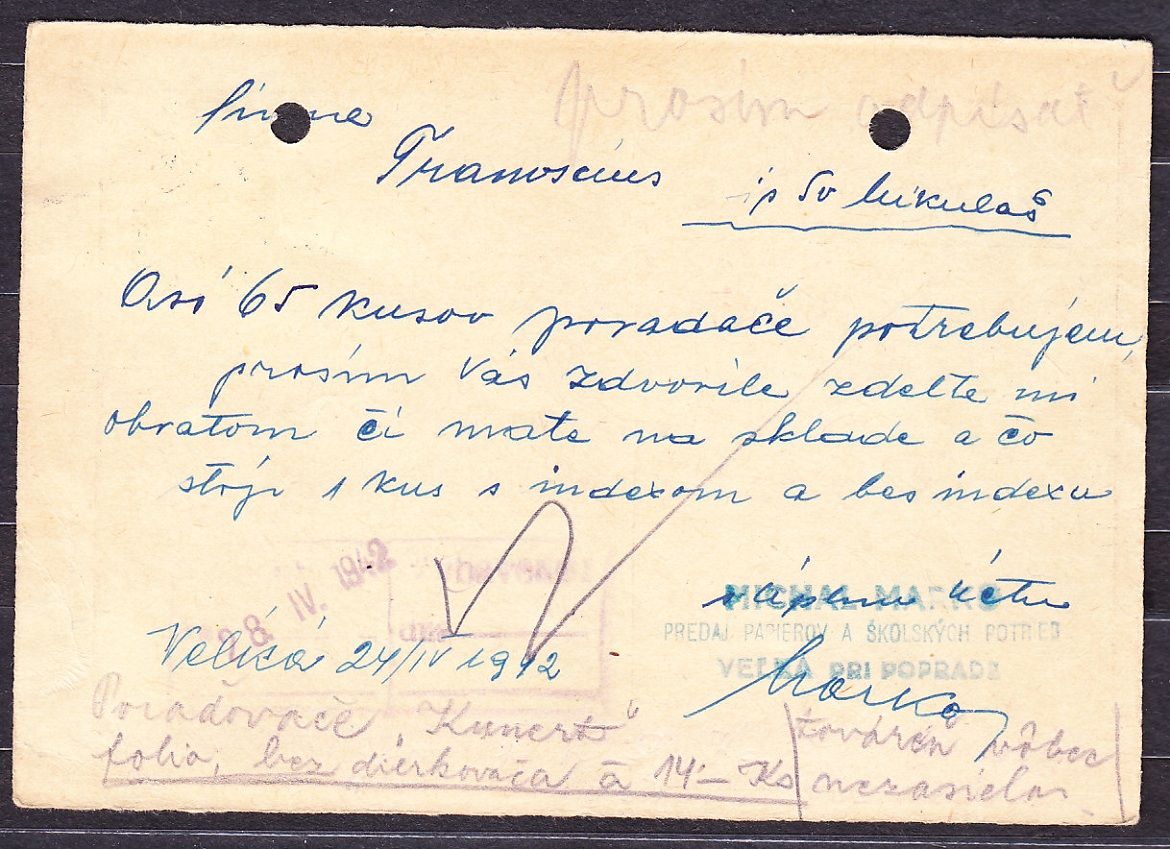 prosím odpísať
firma
Tranoscius
Lip Sv Mikuláš
Asi 65 kusov poradače potrebujem,
prosím Vás zdvorile zdelte mi
obratom či mate na sklade a čo
stoji 1 kus s indexom a bes indexu
v úplnej úctu
MICHAL MARKO
PREDAJ PAPIEROV A ŠKOLSKÝCH POTRIEB
VEĽKÁ PRI POPRADE
28. IV. 1942
Veliká 24/IV 1942
Marko
Poradovače „Kunert“
folio, bez dierkovača à 14·– Ks
továreň vôbec
nezasiela